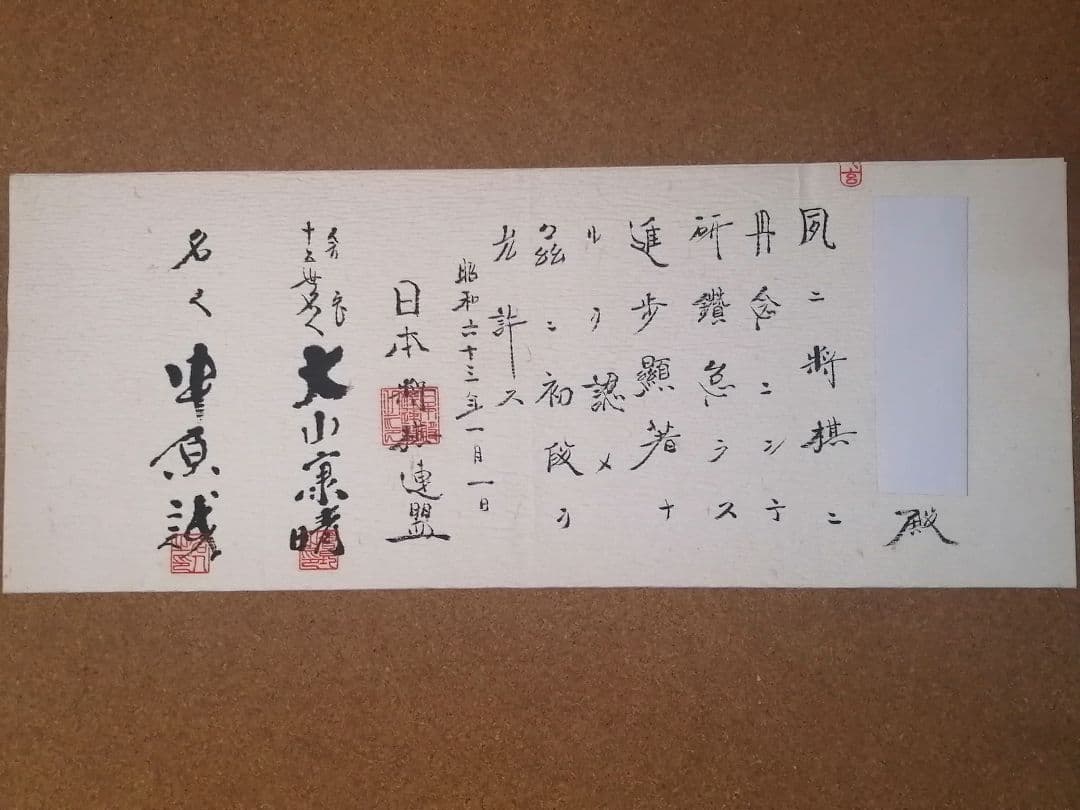 殿
夙ニ將棋ニ
丹念ニシテ
研鑽怠ラス
進歩顯著ナ
ルヲ認メ
茲ニ初段ヲ
允許ス
昭和六十三年一月一日
日本將棋連盟
会長
十五世名人
大山康晴
名人
中原誠